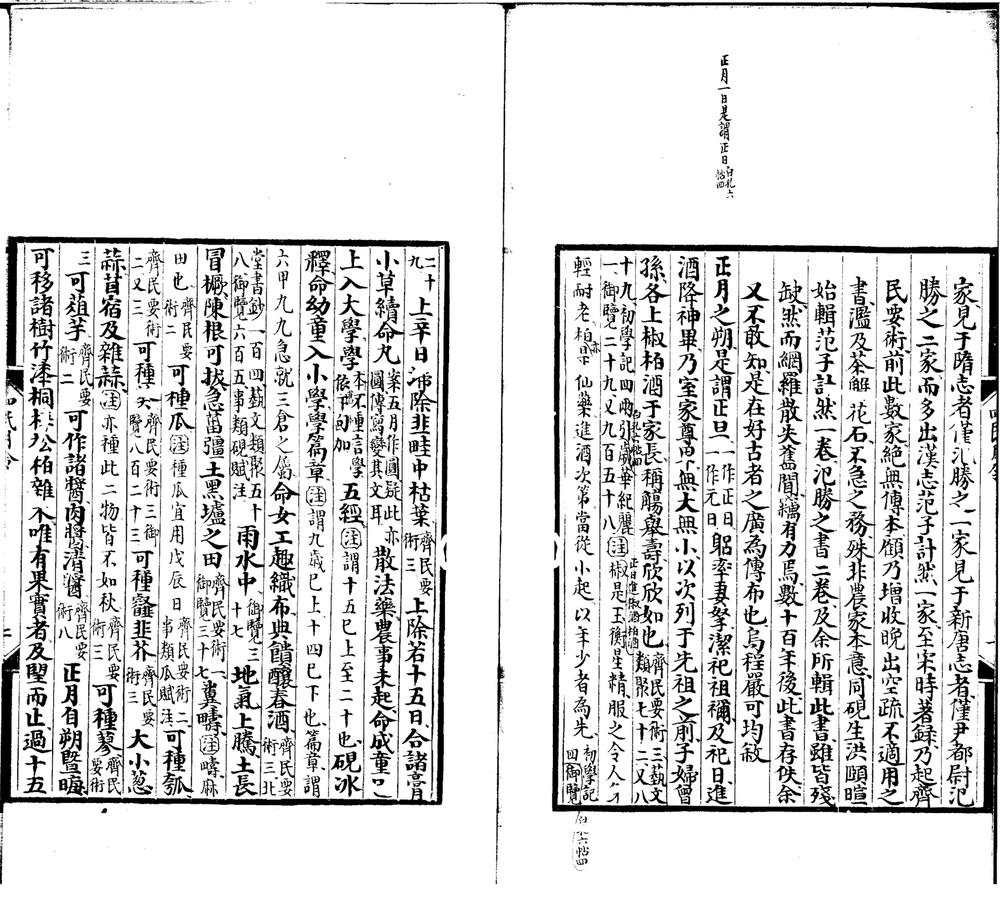 正月一日是謂正日白孔六帖四
家見于隋志者僅氾勝之一家見于新唐志者僅尹都尉氾
勝之二家而多出漢志范子計然一家至宋時著錄乃起齊
民要術前此數家絕無傳本顧乃增收晚出空疏不適用之
書濫及茶觧花石不急之務殊非農家本意同硯生洪頤暄
始輯范子計然一卷氾勝之書二卷及余所輯此書雖皆殘
缺然而網羅散失舊聞竊有力焉數十百年後此書存佚余
又不敢知是在好古者之廣為傳布也烏程嚴可均敘
正月之朔是謂正旦一作正日一作元日躬率妻孥潔祀祖禰及祀日進
酒降神畢乃室家尊卑無大無小以次列于先祖之前子婦曾
孫各上椒柏酒于家長稱觴舉壽欣欣如也齊民要術三藝文類聚七十二又八
十九初學記四兩引歲華紀麗一御覽二十九又九百五十八注椒是玉衡星精服之令人
輕耐老柏亦仙藥進酒次第當從小起以年少者為先初學記四御覽
白六帖四
二十九上辛日掃除韭畦中枯葉齊民要術三上除若十五日合諸膏
小草續命丸案五月作圓疑此亦圓傳寫變其文耳散法藥農事未起命成童已
上入大學學五經注謂十五已上至二十也硯冰
釋命幼童入小學學篇章注謂九歲已上十四已下也篇章謂
六甲九九急就三倉之屬命女工趣織布典饋釀春酒齊民要術三北
堂書鈔一百四藝文類聚五十八御覽六百五事類硯賦注雨水中御覽三十七地氣上騰土長
冒橛陳根可拔急菑彊土黑壚之田齊民要術一御覽三十七糞疇注疇麻
田也齊民要術二可種瓜注種瓜宜用戊辰日齊民要術二事類瓜賦注可種瓠
齊民要術二又三可種齊民要術三御覽八百二十三可種韭芥齊民要術三大小葱
蒜苜宿及雜蒜注亦種此二物皆不如秋齊民要術三可種蓼齊民要術
三可葅芋齊民要術二可作諸醬肉醬清醬齊民要術八正月自朔暨晦
可移諸樹竹漆桐梓松柏雜木唯有果實者及望而止過十五